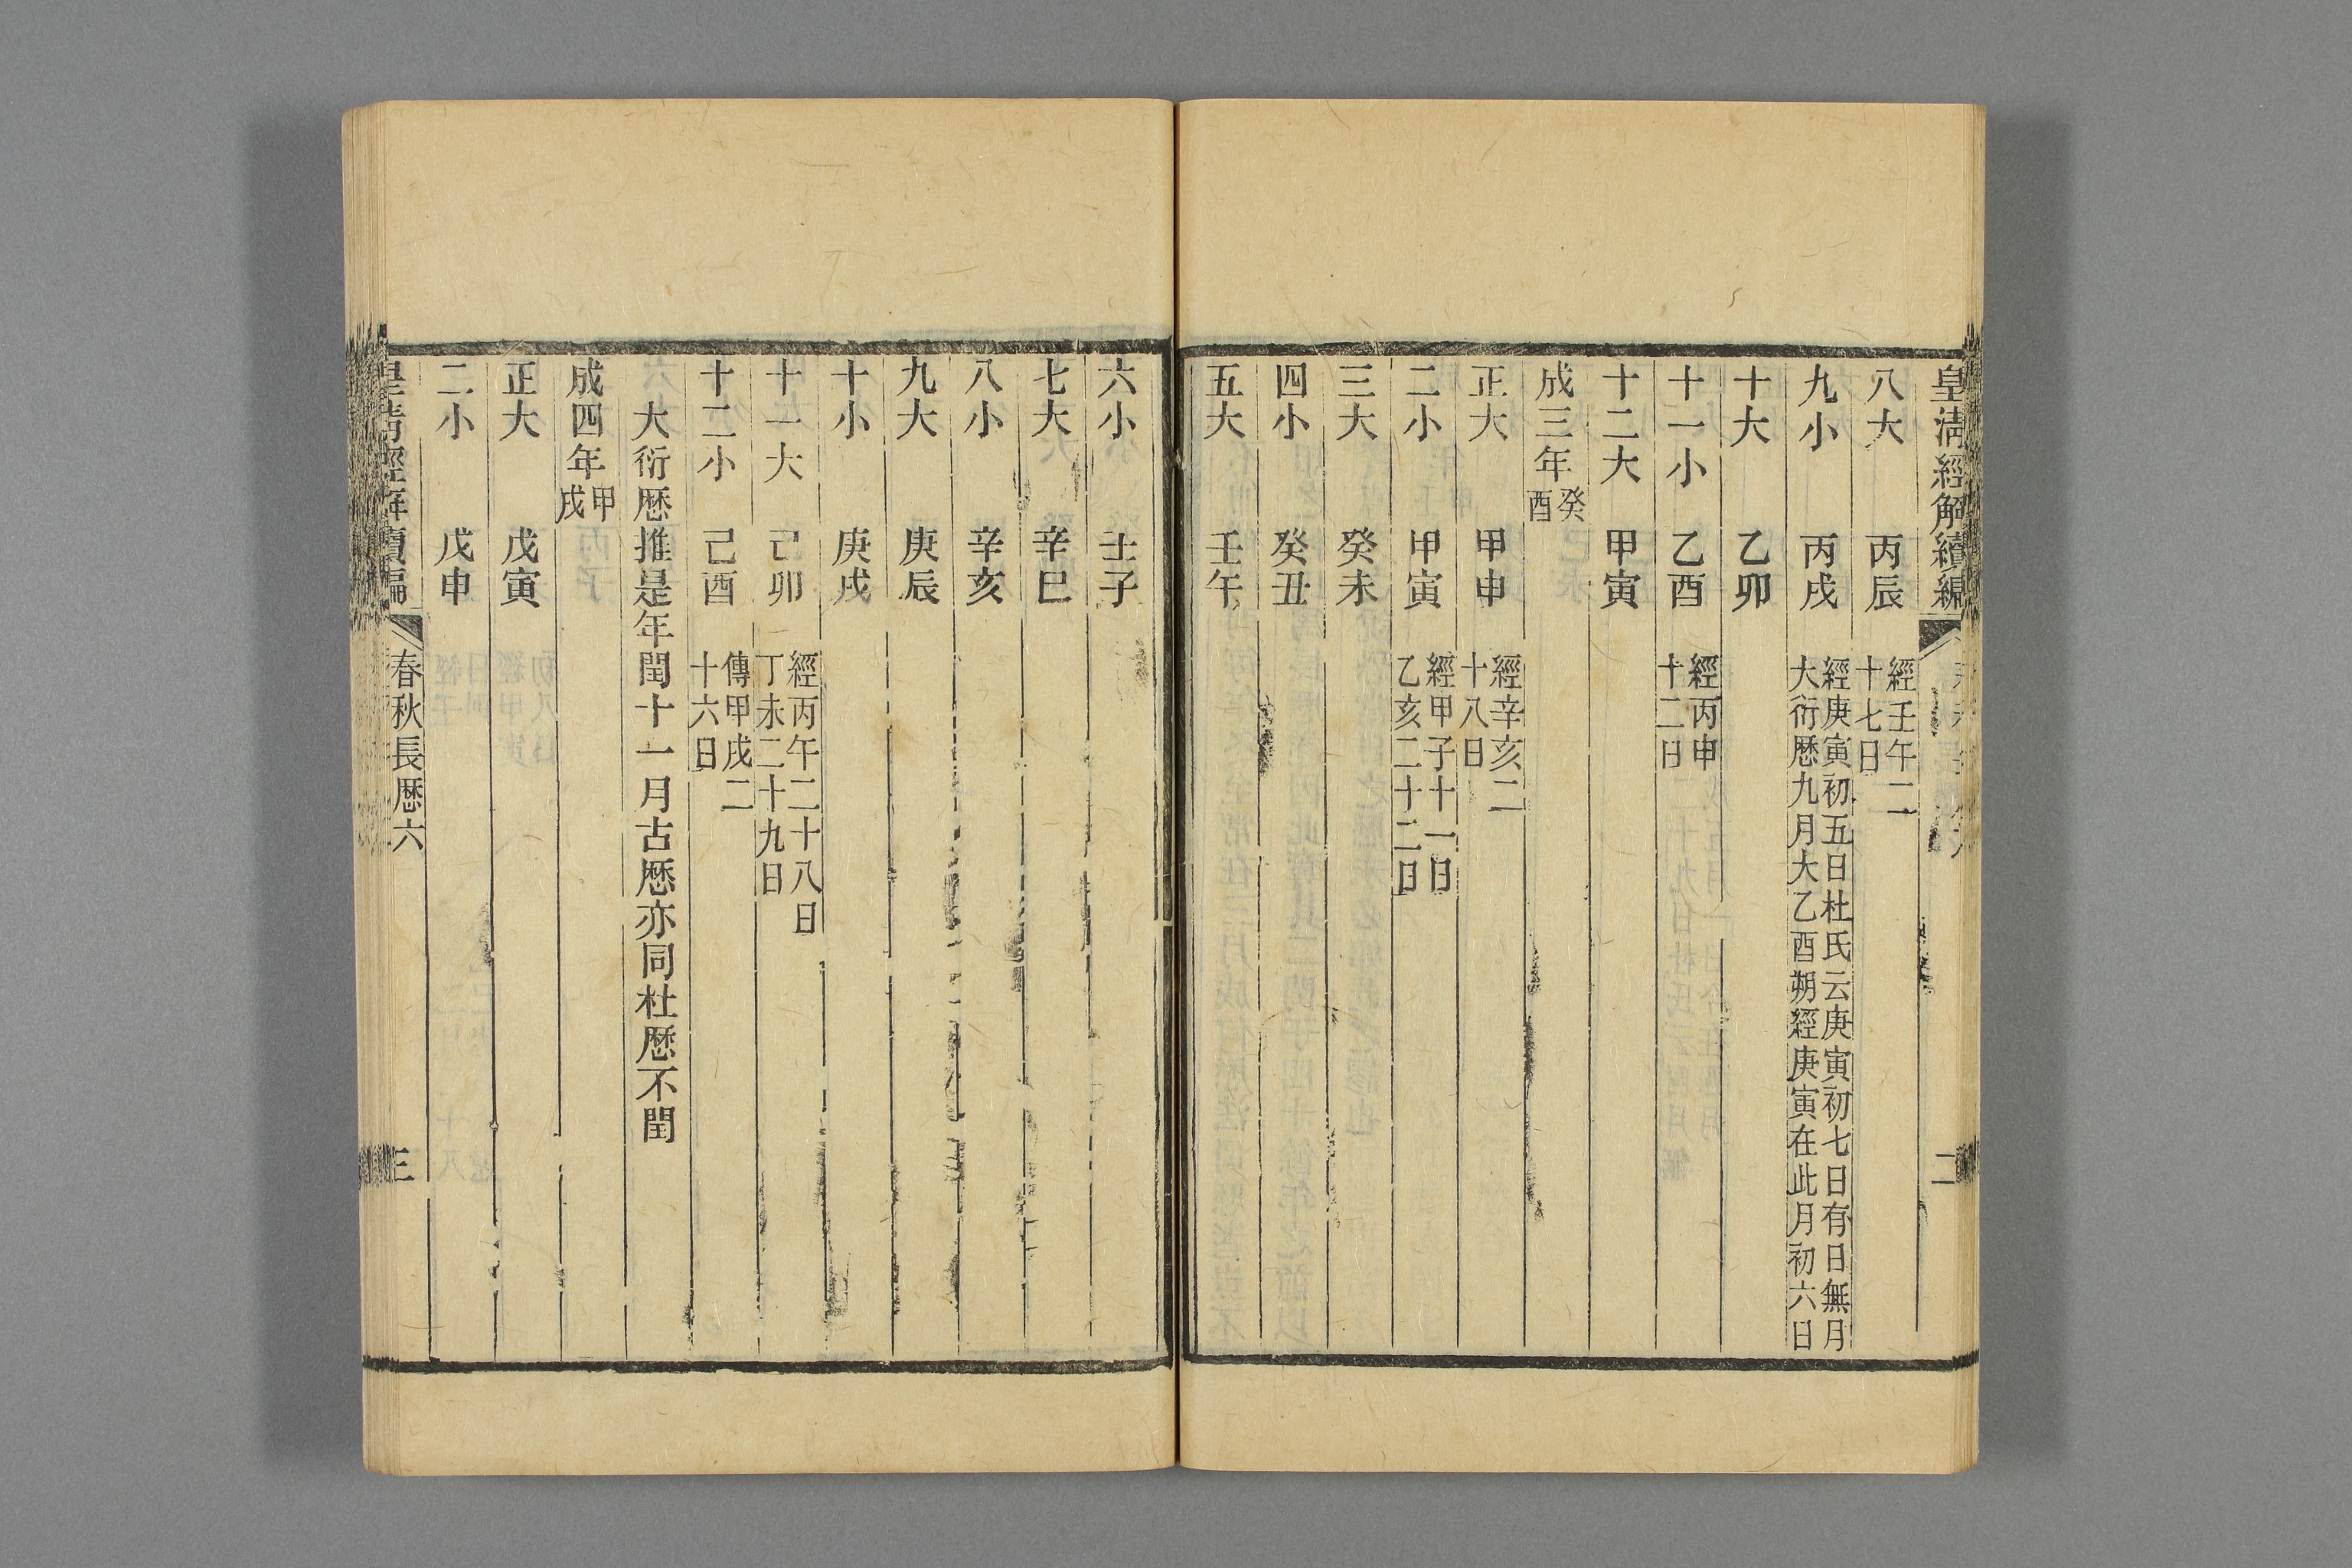 皇淸經解續編
二
八大 丙辰 經壬午二十七日
九小 丙戌 經庚寅初五日杜氏云庚寅初七日有日無月大衍厯九月大乙酉朔經庚寅在此月初六日
十大 乙卯
十一小 乙酉 經丙申十二日
十二大 甲寅
成三年癸酉
正大 甲申 經辛亥二十八日
二小 甲寅 經甲子十一日乙亥二十二日
三大 癸未
四小 癸丑
五大 壬午
六小 壬子
七大 辛巳
八小 辛亥
九大 庚辰
十小 庚戌
十一大 己卯 經丙午二十八日丁未二十九日
十二小 己酉 傳甲戌二十六日
大衍厯推是年閏十一月古厯亦同杜厯不閏
成四年甲戌
正大 戊寅
二小 戊申
皇淸經解續編 春秋長厯六 三